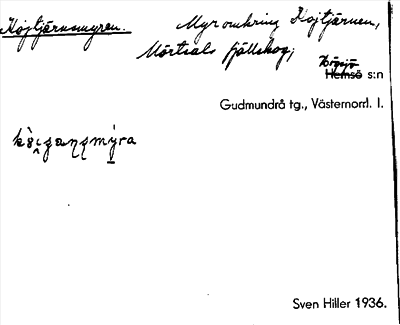 Kojtjärnsmyren. Myr omkring Kojtjärnen,
Mörtsals fjällskog,
Högsjö
Hemsö s:n
Gudmundrå tg., Västernorrl. l.
Sven Hiller 1936.